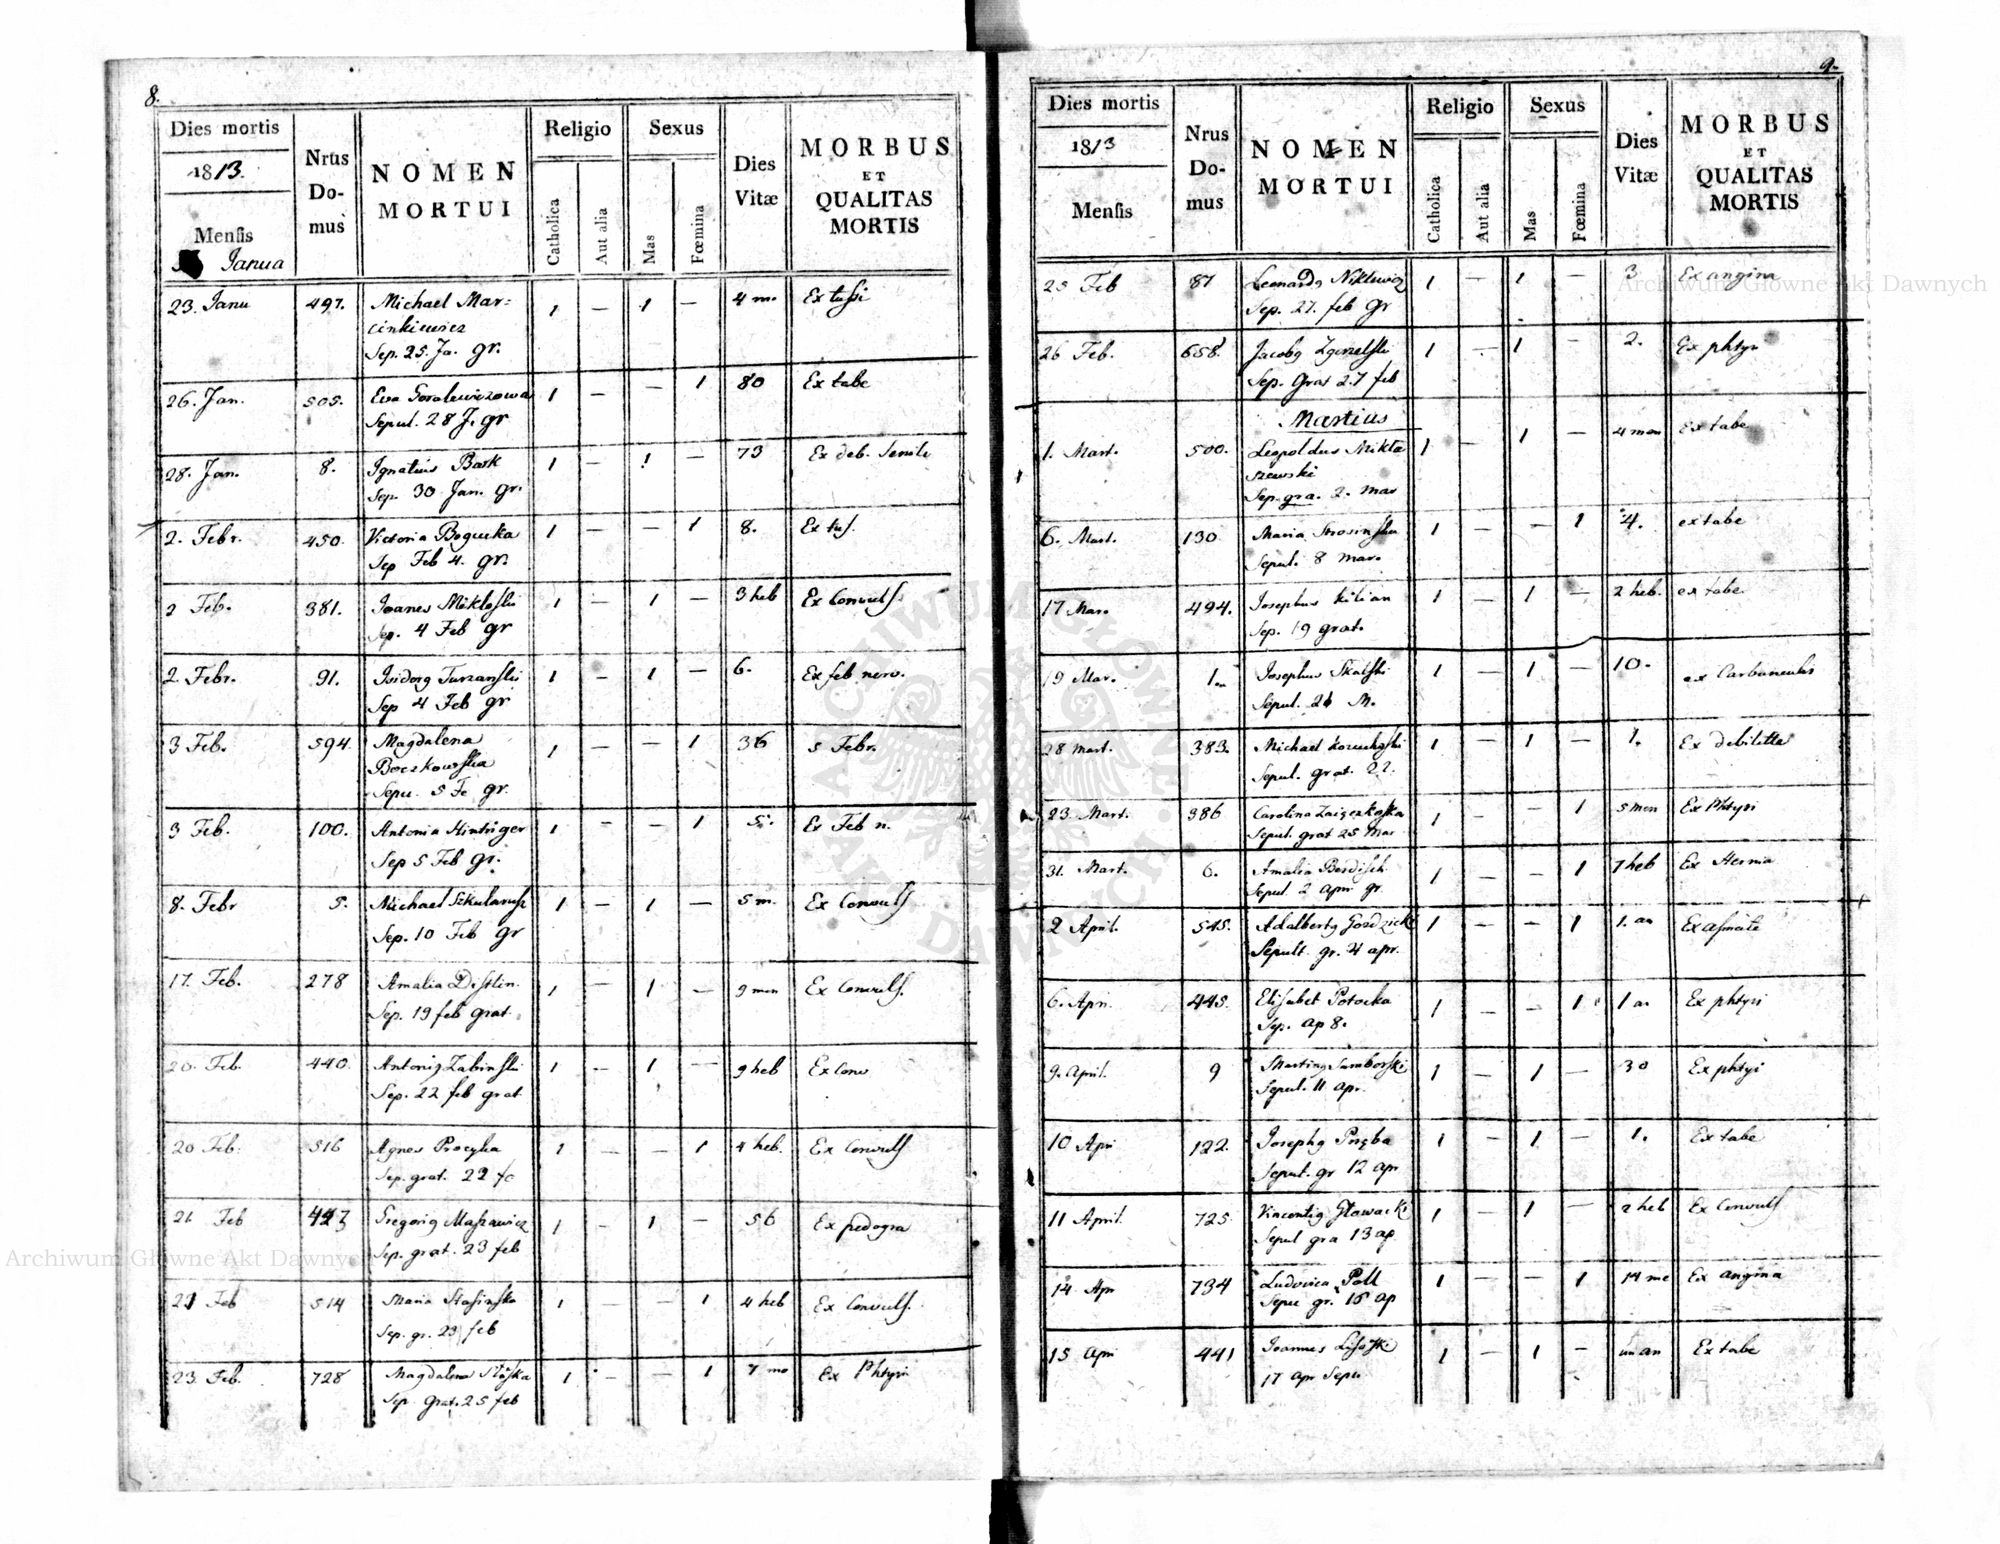 8.
Dies mortis
1813.
Mensis
Janua
Nrus Do- mus
NOMEN MORTUI
Religio
Catholica
Aut alia
Sexus
Mas
Fœmina
Dies Vitæ
MORBUS ET QUALITAS MORTIS
23. Janu 497. Michael Mar= 1 — 1 — 4 mo. Ex tussi
cinkiewicz
Sep. 25. Ja. gr.
26. Jan. 505. Eva Goralewiczowa 1 — — 1 80 Ex tabe
Sepul. 28 J. gr
28. Jan. 8. Ignatius Bark 1 — 1 — 73 Ex deb. Senili
Sep. 30 Jan. gr.
2. Febr. 450. Victoria Bogucka 1 — — 1 8. Ex tus.
Sep Feb 4. gr.
2 Feb. 381. Joanes 1 — 1 — 3 heb Ex Convuls.
Sep. 4 Feb gr
2. Febr. 91. Isidorg Turzanski 1 — 1 — 6. Ex feb nerv.
Sep 4 Feb gr
3 Feb. 594. Magdalena 1 — — 1 36 5 Febr.
Boczkowska
Sepu. 5 Fe gr.
3 Feb. 100. Antonia Hintinger 1 — — 1 5. Ex Feb n.
Sep 5 Feb gr.
8. Febr 5. Michael 1 — 1 — 5 m. Ex Convuls
Sep. 10 Feb gr
17. Feb. 278 Amalia Distlin. 1 — 1 — 9 men Ex Convuls.
Sep. 19 feb grat.
20. Feb. 440. Antonig Zabinski 1 — 1 — 9 heb Ex Conv
Sep. 22 feb grat
20 Feb. 516 Agnes 1 — — 1 4 heb. Ex Convuls
Sep. grat. 22 fe
21 Feb Gregorig 1 — 1 — 56 Ex pedogra
Sep. grat. 23 feb
Feb 514 Maria Stasinska 1 — — 1 4 heb Ex Convuls.
Sep. gr. 23 feb
23 Feb. 728 Magdalena 1 — — 1 7 mo Ex Phtysi
Sep Grat. 25 feb
9.
Dies mortis
1813
Mensis
Nrus Do- mus
NOMEN MORTUI
Religio
Catholica
Aut alia
Sexus
Mas
Fœmina
Dies Vitæ
MORBUS ET QUALITAS MORTIS
25 Feb 87 Leonardg 1 — 1 — 3 Ex angina
Sep. 27. feb gr
26 Feb. 658. Jacobg 1 — 1 2. Ex phtysi
Sep. Grat 27 feb
Martius
1. Mart. 500. Leopoldus Mikla 1 — 1 — 4 men Ex tabe
szewski
Sep. gra. 2. mar
6. Mart. 130 Maria 1 — — 1 4. ex tabe
Sepul. 8 mar.
17 Mar. 494. Josephus Kilian 1 — 1 — 2 heb. ex tabe.
Sep. 19 grat.
19 Mar. 1. Josephus Skalski 1 — 1 — 10. ex Carbunculis
Sepul. M.
28 Mart. 383. Michael 1 — 1 — 1. Ex debilitta
Sepul. grat. 22.
23. Mart. 386 Carolina 1 — — 1 5 men Ex Phtysi
Sepul. grat 25 Mar
31. Mart. 6. Amalia 1 — — 1 7 heb Ex Hernia
Sepul 2 apri gr.
2 April. 545. Adalbertg Gordzicki 1 — — 1 1. an Ex asmate
Sepult. gr. 4 apr.
6. Apri. 445. Elisabet Potocka 1 — — 1 1 an Ex phtysi
Sep. ap 8.
9. April. 9 Marting Samborski 1 — 1 — 30 Ex phtysi
Sepul. 11 apr.
10 Apri 122. Josephg 1 — 1 — 1. Ex tabe
Sepul. gr 12 apr
11 April. 725. Vincentig Glawacki 1 — 1 — 2 heb Ex Convuls
Sepul gra 13 ap
14. Apr 734 Ludovica Poll 1 — — 1 14 me Ex angina
Sepu gr. 16 ap
15 Apri 441 Joannes 1 — 1 — an Ex tabe
17 Apr Sepu
ARCHIWUM GŁÓWNE AKT DAWNYCH
Archiwum Główne Akt Dawnych
Archiwum Główne Akt Dawnych